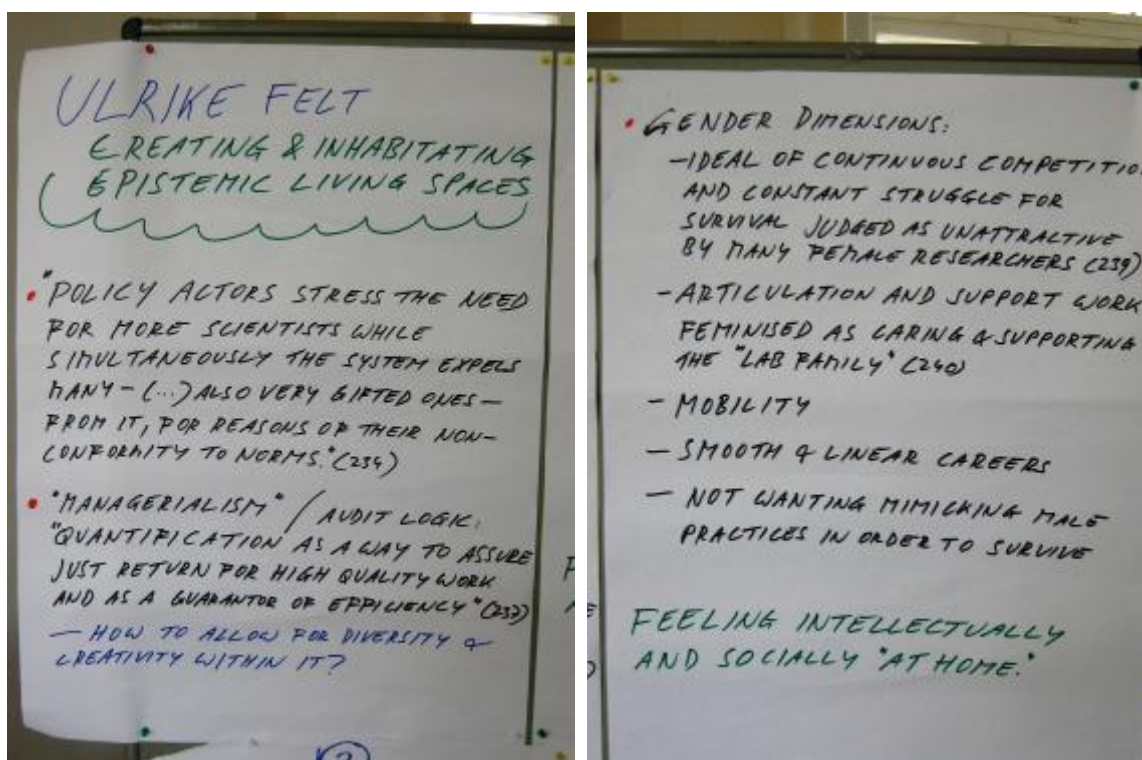 ULRIKE FELT
CREATING & INHABITATING
EPISTEMIC LIVING SPACES
• "POLICY ACTORS STRESS THE NEED
FOR MORE SCIENTISTS WHILE
SIMULTANEOUSLY THE SYSTEM EXPELS
MANY – (...) ALSO VERY GIFTED ONES –
FROM IT, FOR REASONS OF THEIR NON-
CONFORMITY TO NORMS." (234)
• "MANAGERIALISM" / AUDIT LOGIC:
"QUANTIFICATION AS A WAY TO ASSURE
JUST RETURN FOR HIGH QUALITY WORK
AND AS A GUARANTOR OF EFFICIENCY" (237)
– HOW TO ALLOW FOR DIVERSITY &
CREATIVITY WITHIN IT?
• GENDER DIMENSIONS:
– IDEAL OF CONTINUOUS COMPETITIO
AND CONSTANT STRUGGLE FOR
SURVIVAL JUDGED AS UNATTRACTIVE
BY MANY FEMALE RESEARCHERS (239)
– ARTICULATION AND SUPPORT WORK
FEMINISED AS CARING & SUPPORTING
THE "LAB FAMILY" (240)
– MOBILITY
– SMOOTH & LINEAR CAREERS
– NOT WANTING MIMICKING MALE
PRACTICES IN ORDER TO SURVIVE
FEELING INTELLECTUALLY
AND SOCIALLY "AT HOME."